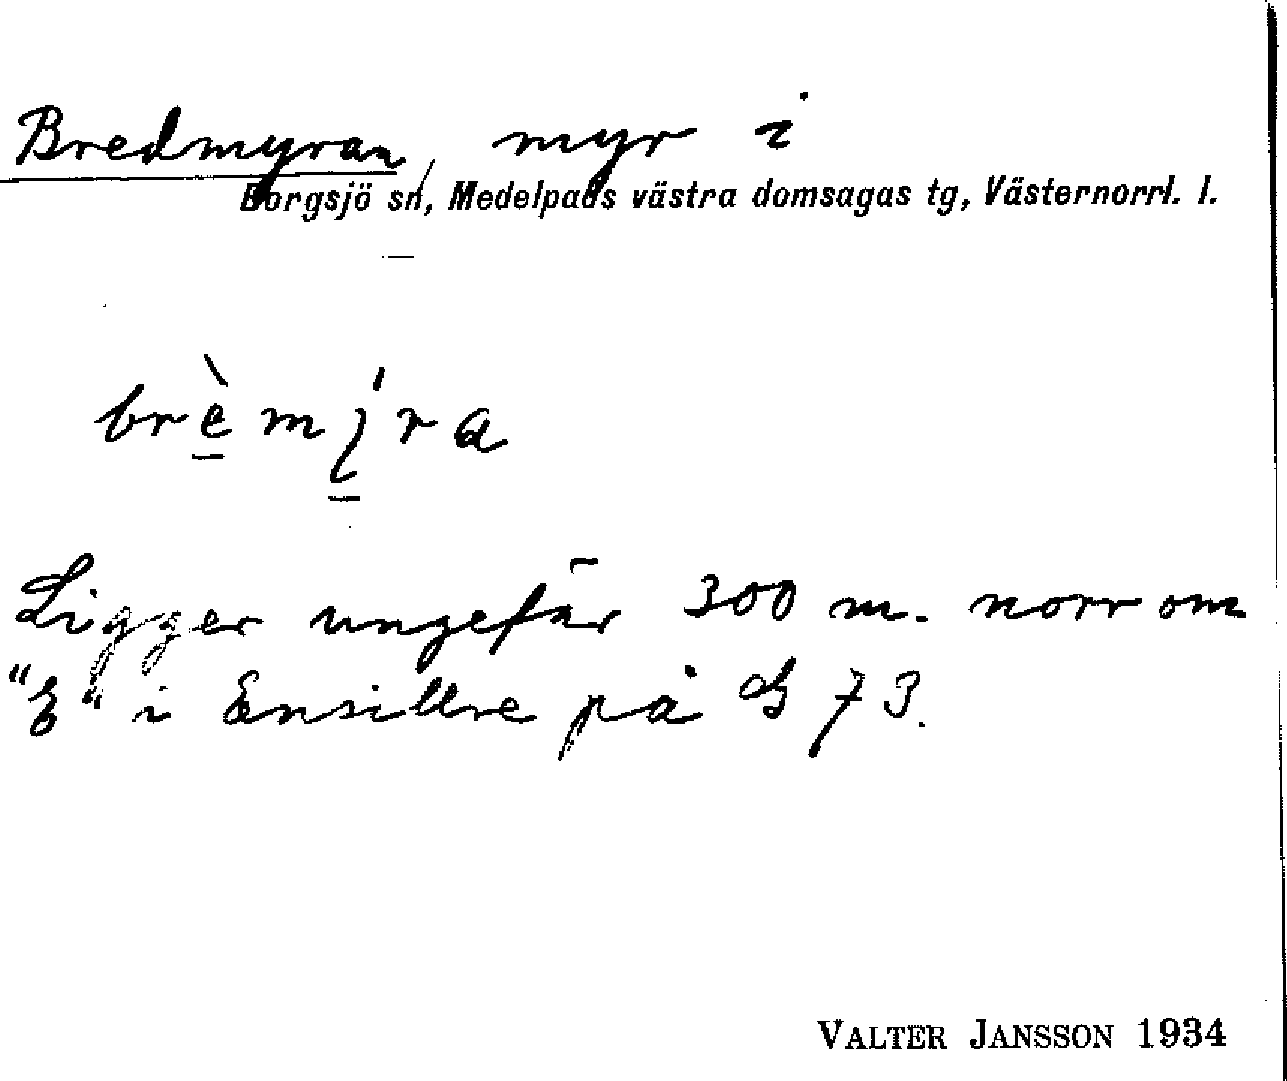 Bredmyran, myr i
Borgsjö sn, Medelpads västra domsagas tg, Västernorrl. l.
brè̱mý̱ra
Ligger ungefär 300 m. norr om
"E" i Ensillre på G 73.
VALTER JANSSON 1934